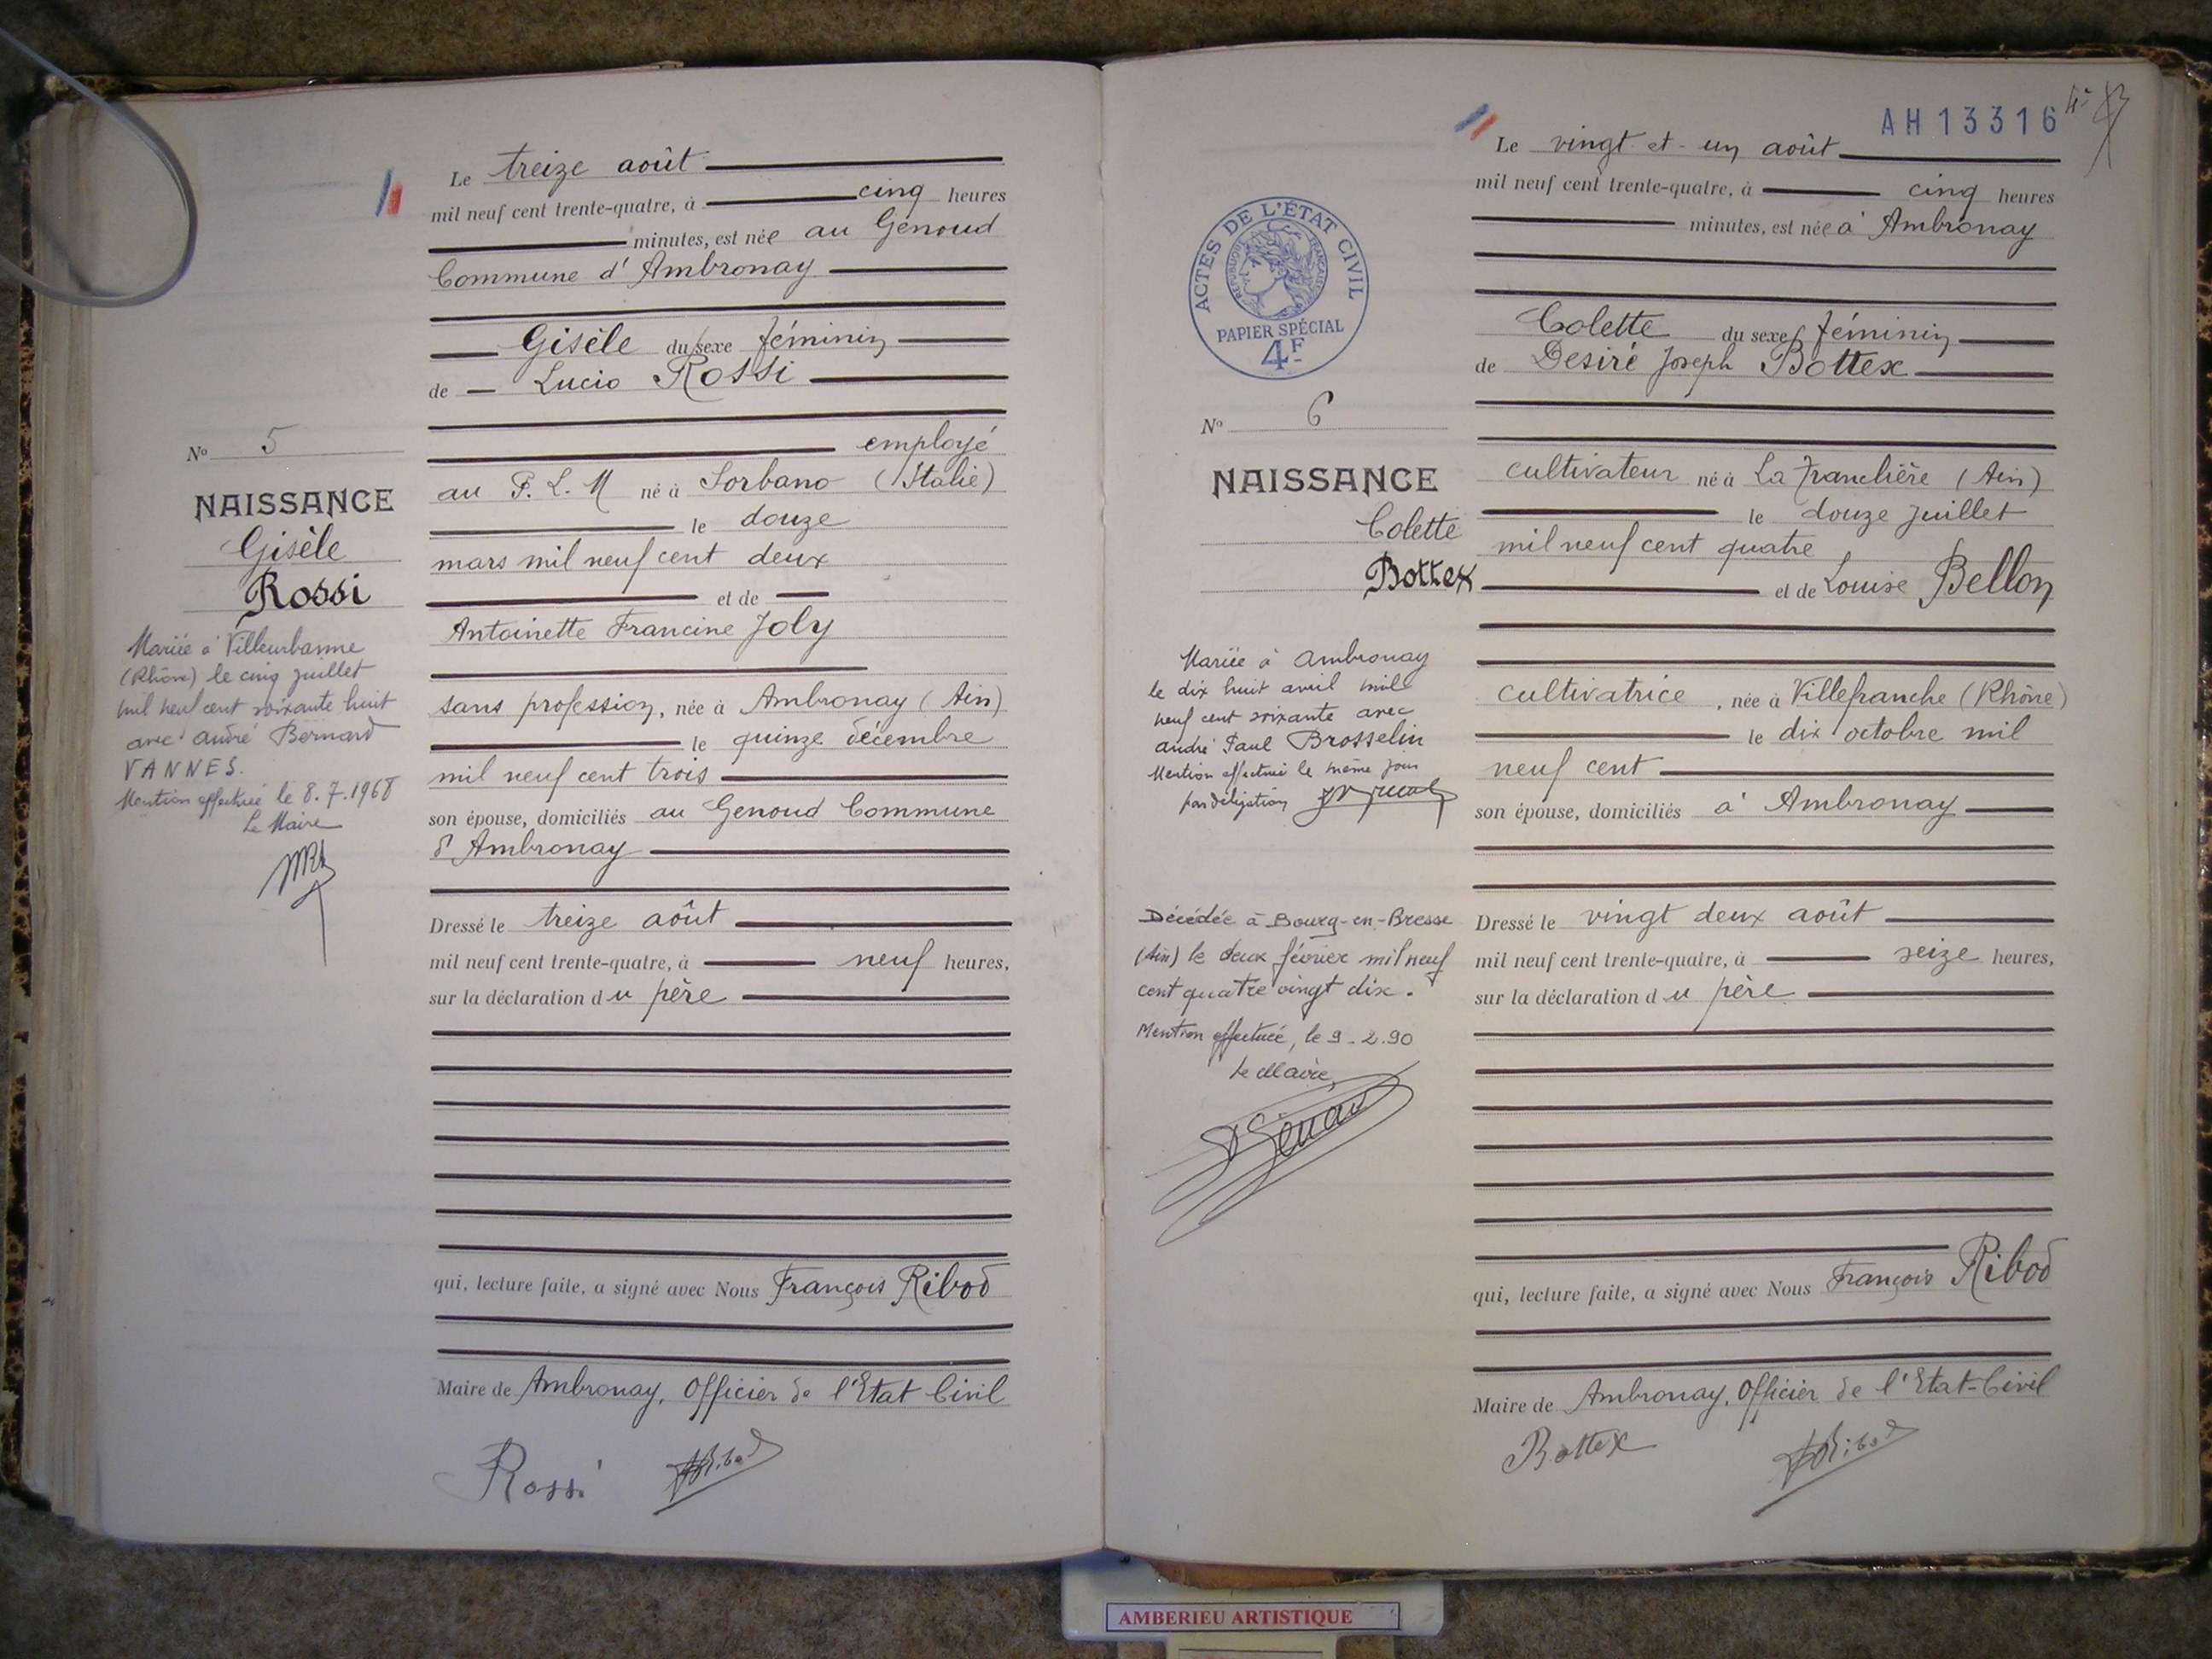 Le treize août
mil neuf cent trente-quatre, à cinq heures
minutes, est née au Genoud
Commune d'Ambronay
Gisèle du sexe féminin
de Lucio Rossi
employé
au P. L. M né à Sorbano (Italie)
le douze
mars mil neuf cent deux
et de
Antoinette Francine Joly
sans profession, née à Ambronay (Ain)
le quinze décembre
mil neuf cent trois
son épouse, domiciliés au Genoud Commune
d'Ambronay
Dressé le treize août
mil neuf cent trente-quatre, à neuf heures,
sur la déclaration du père
qui, lecture faite, a signé avec Nous François Ribod
Maire de Ambronay, Officier de l'Etat Civil
Rossi
No 5
NAISSANCE
Gisèle
Rossi
Mariée à Villeurbanne
(Rhône) le cinq juillet
mil neuf cent soixante huit
avec André Bernard
VANNES.
Mention effectuée le 8.7.1968
Le Maire
AH13316
Le vingt et un août
mil neuf cent trente-quatre, à cinq heures
minutes, est née à Ambronay
Colette du sexe féminin
de Desiré Joseph Bottex
cultivateur né à La Tranclière (Ain)
le douze juillet
mil neuf cent quatre
et de Louise Bellon
cultivatrice, née à Villefranche (Rhône)
le dix octobre mil
neuf cent
son épouse, domiciliés à Ambronay
Dressé le vingt deux août
mil neuf cent trente-quatre, à seize heures,
sur la déclaration du père
qui, lecture faite, a signé avec Nous François Ribod
Maire de Ambronay, Officier de l'Etat-Civil
Bottex
ACTES DE L'ÉTAT CIVIL
RÉPUBLIQUE FRANÇAISE
PAPIER SPÉCIAL
4F
No 6
NAISSANCE
Colette
Bottex
Mariée à Ambronay
le dix huit avril mil
neuf cent soixante avec
André Paul Brosselin
Mention effectuée le même jour
par délégation
Décédée à Bourg-en-Bresse
(Ain) le deux février mil neuf
cent quatre vingt dix.
Mention effectuée, le 9.2.90
Le Maire,
AMBERIEU ARTISTIQUE